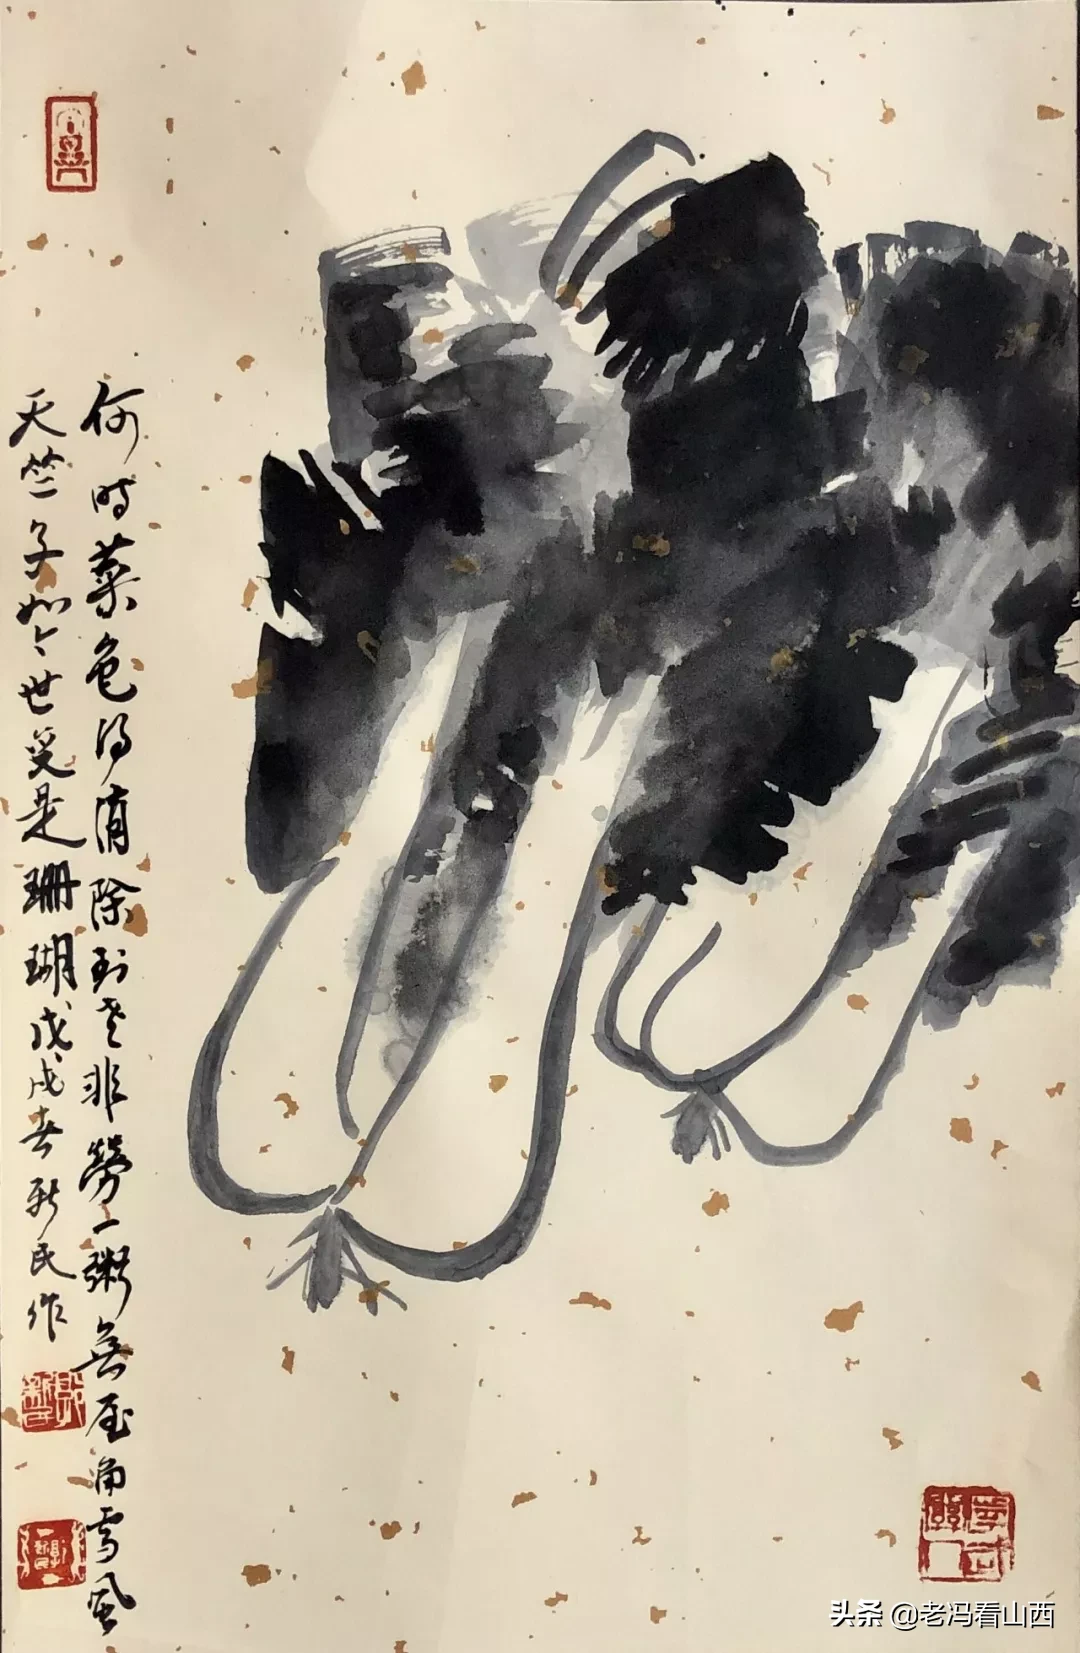 何时菜色得消除到老非劳一粥无屋角雪风
天竺子如今世受是珊瑚戊戌春新民作
头条 @老冯看山西